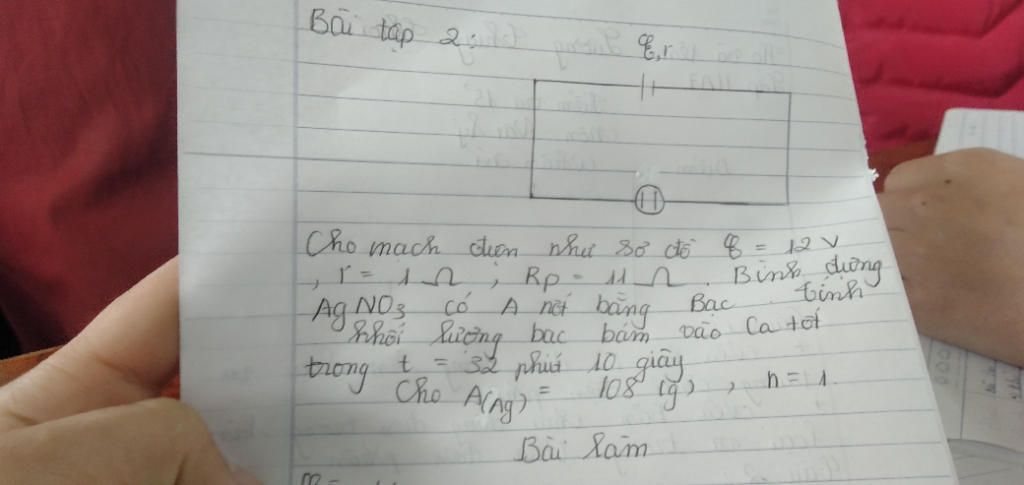 Bài tập 2:
ξ, r
Cho mạch điện như sơ đồ ξ = 12 V
, r = 1 Ω , Rp = 11 Ω . Bình đựng
AgNO3 có A nốt bằng Bạc . tính
khối lượng bạc bám vào Ca tốt
trong t = 32 phút 10 giây
Cho A(Ag) = 108 (g) , n = 1.
Bài làm